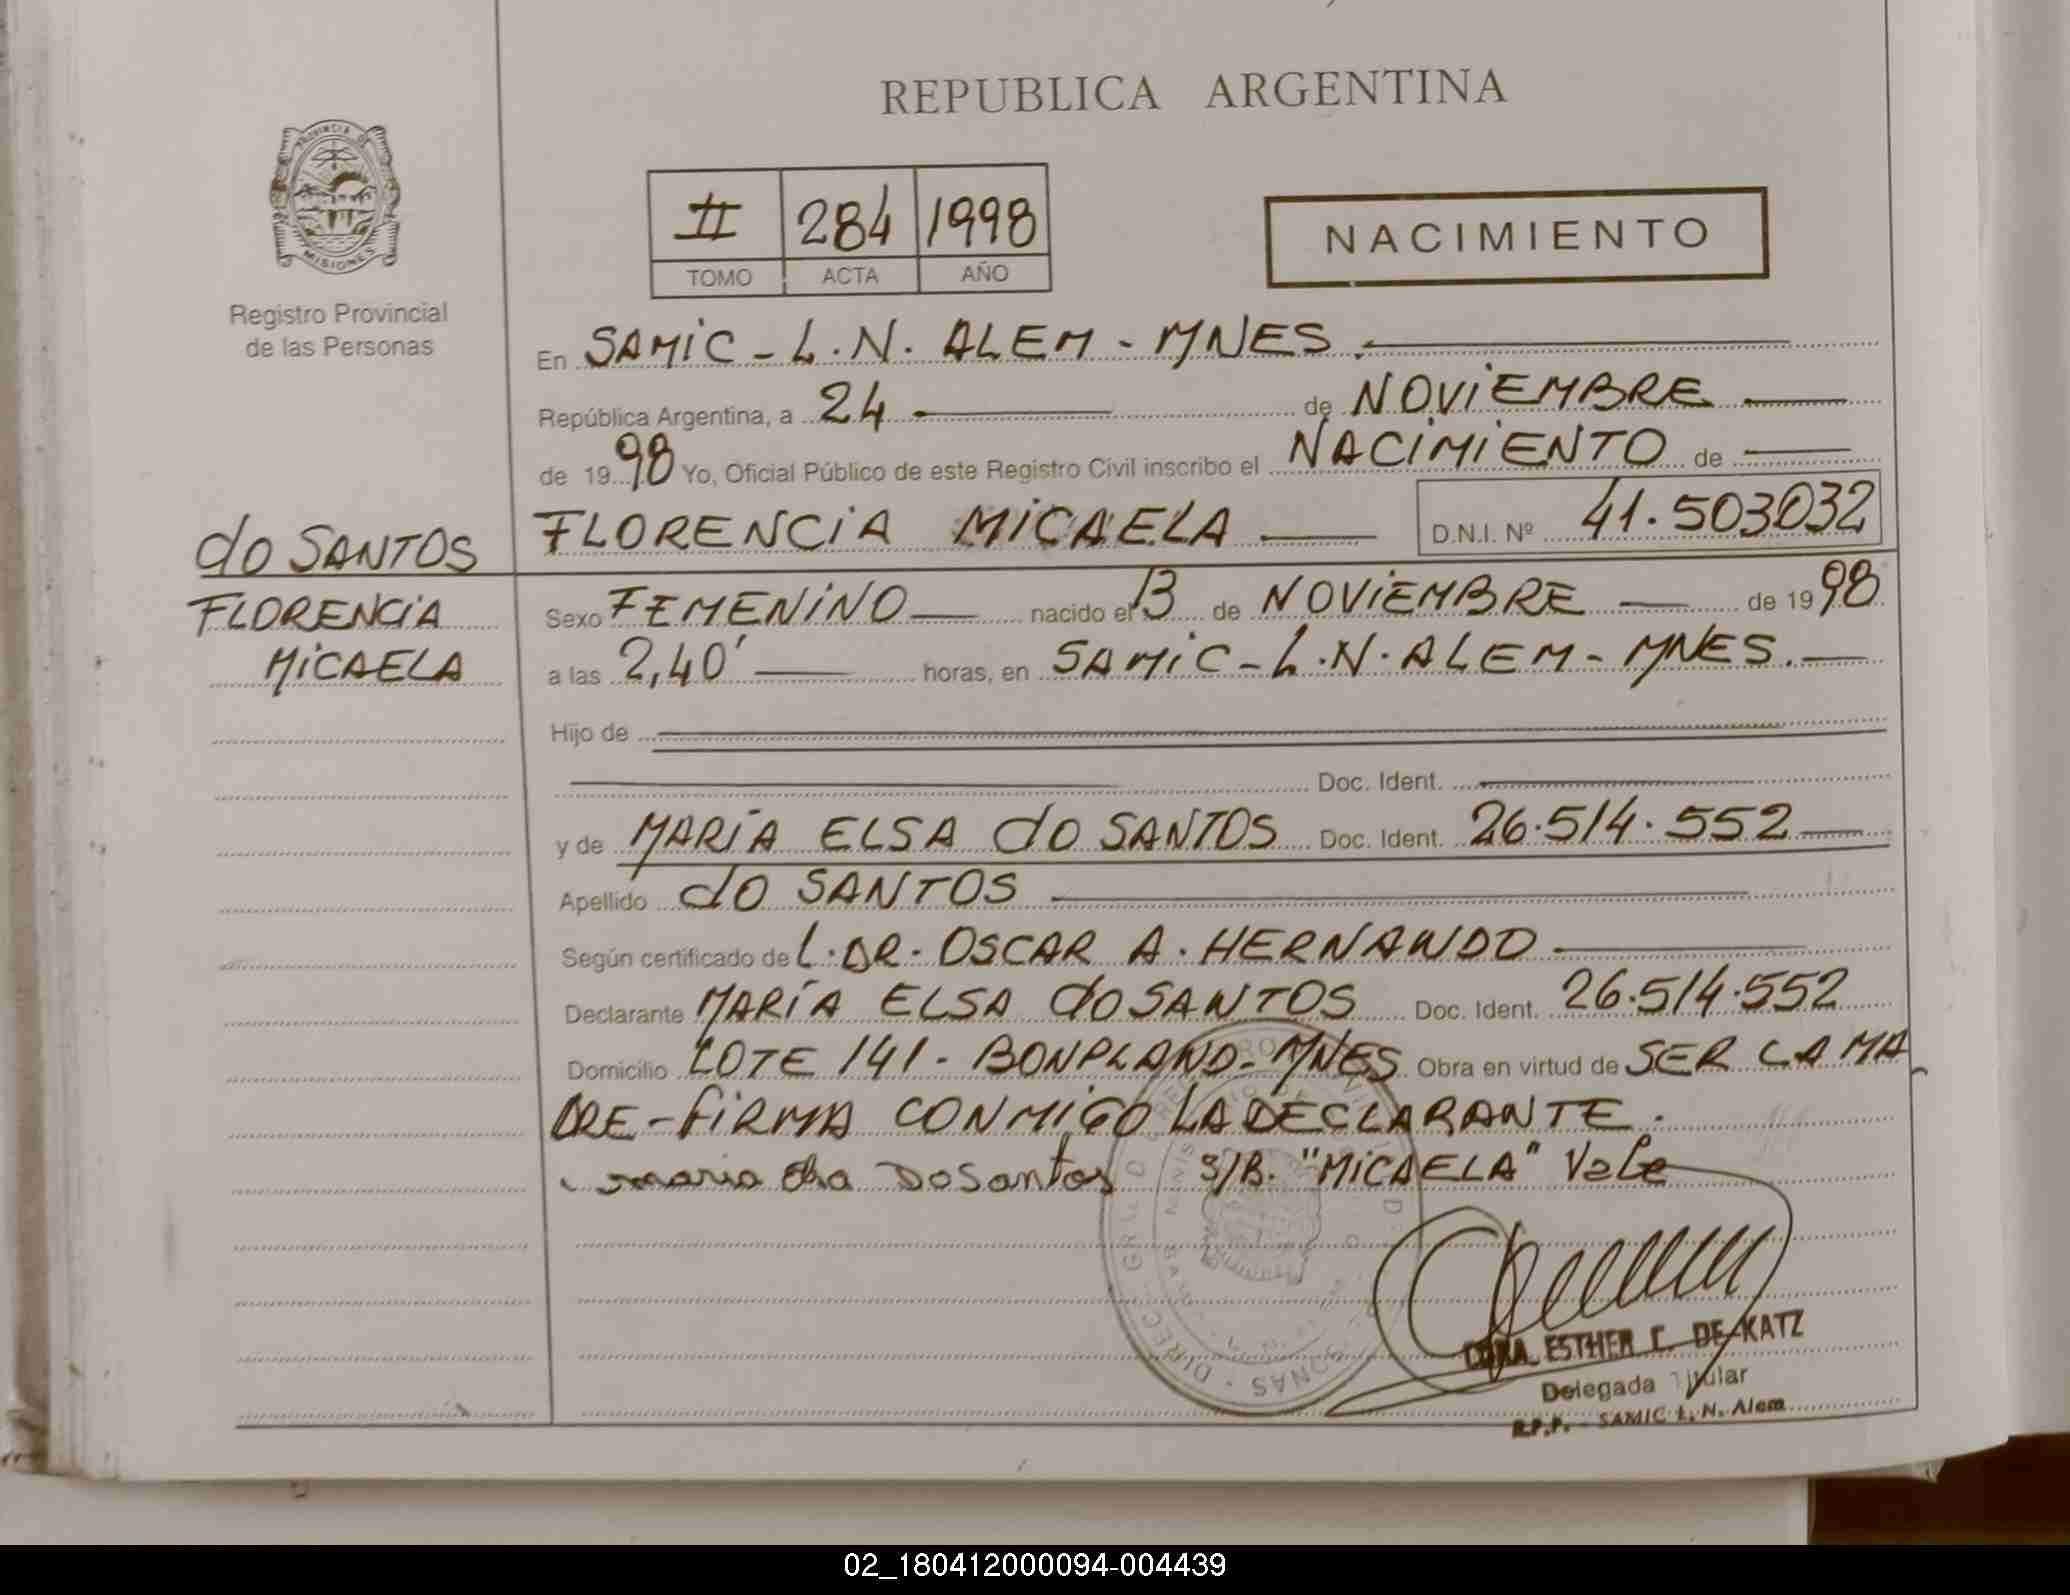 REPUBLICA ARGENTINA
PROVINCIA DE
MISIONES
Registro Provincial
de las Personas
II 284 1998
TOMO ACTA AÑO
NACIMIENTO
En SAMIC - L.N. ALEM - MNES.
República Argentina, a 24 de NOVIEMBRE
de 1998 Yo, Oficial Público de este Registro Civil inscribo el NACIMIENTO de
do SANTOS FLORENCIA MICAELA D.N.I. Nº 41.503032
FLORENCIA Sexo FEMENINO nacido el 13 de NOVIEMBRE de 1998
MICAELA a las 2,40' horas, en SAMIC - L.N. ALEM - MNES.
Hijo de
Doc. Ident.
y de MARÍA ELSA do SANTOS Doc. Ident. 26.514.552
Apellido do SANTOS
Según certificado de L. DR. OSCAR A. HERNANDO
Declarante MARÍA ELSA do SANTOS Doc. Ident. 26.514.552
Domicilio LOTE 141 - BONPLAND - MNES Obra en virtud de SER LA MA
DRE - FIRMA CONMIGO LA DECLARANTE.
maria elsa DoSantos S/B. "MICAELA" Vale
ESTHER C. DE KATZ
Delegada Titular
R.P.P. - SAMIC L. N. Alem
02_180412000094-004439